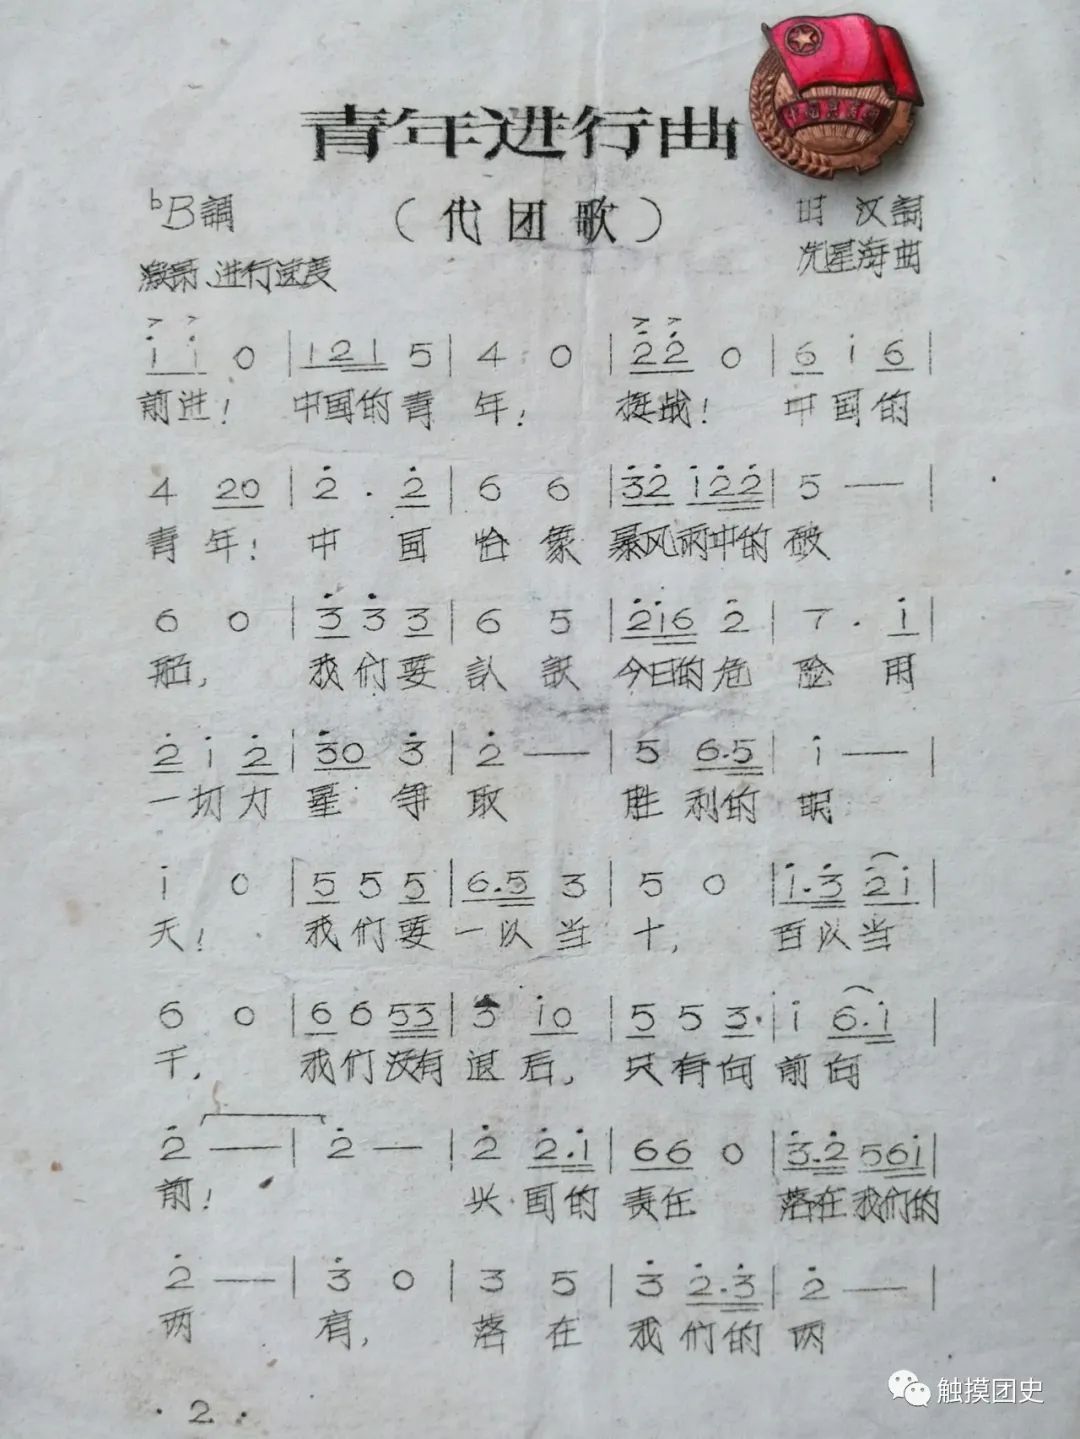 青年进行曲
(代团歌)
bB調
激昂、进行速度
田汉詞
冼星海曲
i i 0 | 1 2 1 5 | 4 0 | 2 2 0 | 6 i 6 |
前进! 中国的青年! 挺战! 中国的
4 2 0 | 2 . 2 | 6 6 | 3 2 i 2 2 | 5 — |
青年! 中国恰象暴风雨中的破
6 0 | 3 3 3 | 6 5 | 2 i 6 2 | 7 . i |
船, 我们要认识今日的危险用
2 i 2 | 3 0 3 | 2 — | 5 6 . 5 | i — |
一切力量争取胜利的明
i 0 | 5 5 5 | 6 . 5 3 | 5 0 | i . 3 2 i |
天! 我们要一以当十, 百以当
6 0 | 6 6 5 3 | 3 i 0 | 5 5 3 | i 6 . i |
千, 我们没有退后, 只有向前向
2 — | 2 — | 2 2 . i | 6 6 0 | 3 . 2 5 6 i |
前! 兴国的责任落在我们的
2 — | 3 0 | 3 5 | 3 2 . 3 | 2 — |
两肩, 落在我们的两
· 2 ·
触摸团史